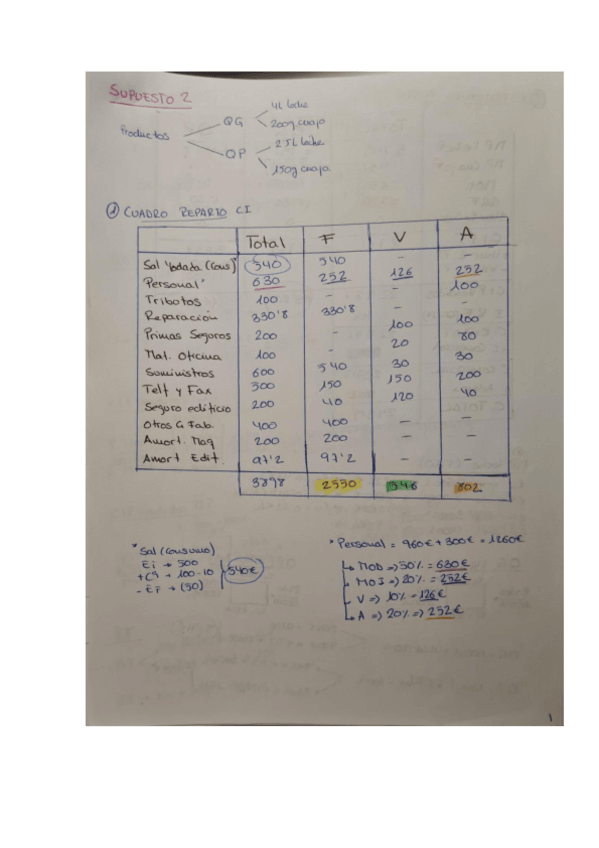 SUPUESTO 2
Productos
QG
4L leche
200g cuajo
QP
2'5L leche
150g cuajo
① CUADRO REPARTO CI
Total F V A
Sal Yodada (Cons) 540 540 - -
Personal* 630 252 126 252
Tributos 100 - - 100
Reparación 330'8 330'8 - -
Primas Seguros 200 - 100 100
Mat. Oficina 100 - 20 80
Suministros 600 540 30 30
Telf y Fax 500 150 150 200
Seguro edificio 200 40 120 40
Otros G Fab. 400 400 - -
Amort. Maq 200 200 - -
Amort Edit. 97'2 97'2 - -
3898 2550 546 802
* Sal (consumo)
Ei → 500
+ C's → 100-10
- EF → (50)
540€
* Personal = 960€ + 300€ = 1260€
MOD => 50% = 630€
MOI => 20% = 252€
V => 10% = 126€
A => 20% => 252€
1